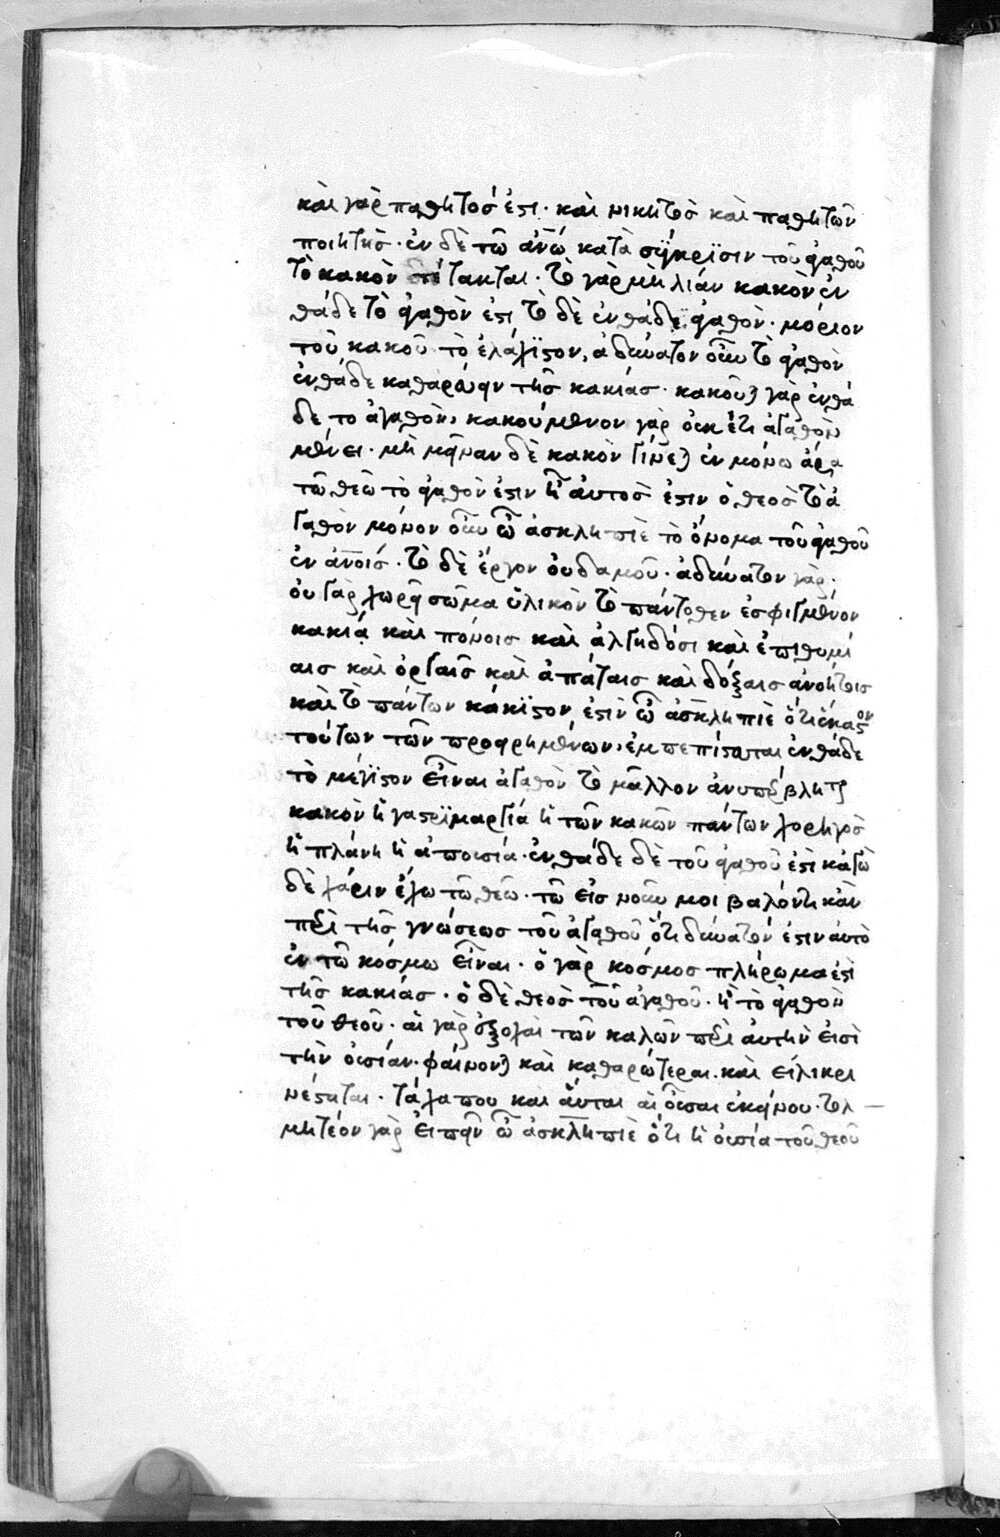 καὶ γὰρ παθητός ἐστι· καὶ νικητὸς καὶ παθητῶν
ποιητής· ἐν δὲ τῶ ἀνω κατὰ σύγκρισιν τοῦ ἀγαθοῦ
τὸ κακὸν τέτακται· τὸ γὰρ μὴ λίαν κακὸν ἐν
θάδε τὸ ἀγαθὸν ἐστι τὸ δὲ ἐνθάδε ἀγαθὸν· μόριον
τοῦ κακοῦ τὸ ἐλάχιστον, ἀδύνατον οὖν τὸ ἀγαθὸν
ἐνθάδε καθαρεύειν τῆς κακίας· κακοῦται γὰρ ἐνθά
δε το ἀγαθὸν, κακούμενον γὰρ οὐκ ἔτι ἀγαθὸν
μένει· μὴ μεῖναν δὲ κακὸν γίνεται ἐν μόνω ἄρα
τῶ θεῶ τὸ ἀγαθὸν ἐστιν ἢ αὐτὸς ἐστιν ὁ θεὸς τὸ ἀ
γαθὸν μόνον οὖν ὦ ἀσκληπιὲ τὸ ὄνομα τοῦ ἀγαθοῦ
ἐν ἀνοις· τὸ δὲ ἔργον οὐδαμοῦ· ἀδύνατον γὰρ·
οὐ γὰρ χωρεῖ σῶμα ὑλικὸν τὸ πάντοθεν ἐσφιγμένον
κακία καὶ πόνοις καὶ ἀλγηδόσι καὶ ἐπιθυμί
αις καὶ ὀργαῖς καὶ ἀπάταις καὶ δόξαις ἀνοήτοις
καὶ τὸ πάντων κάκιστον, ἐστὶν ὦ ἀσκληπιὲ ὅτι ἕκαστον
τούτων τῶν προειρημένων, ἐμπεπίστωται ἐνθάδε
τὸ μέγιστον εἶναι ἀγαθὸν τὸ μᾶλλον ἀνυπέρβλητον
κακὸν ἡ γαστριμαργία ἡ τῶν κακῶν πάντων χορηγὸς
ἡ πλάνη ἡ ἀπουσία· ἐνθάδε δὲ τοῦ ἀγαθοῦ ἐστὶ κἀγὼ
δὲ χάριν ἔχω τῶ θεῶ· τῶ εἰς νοῦν μοι βαλόντι κἂν
περὶ τῆς γνώσεως τοῦ ἀγαθοῦ ὅτι δύνατόν ἐστιν αὐτὸ
ἐν τῶ κόσμω εἶναι· ὁ γὰρ κόσμος πλήρωμα ἐστὶ
τῆς κακίας· ὁ δὲ θεὸς τοῦ ἀγαθοῦ· ἢ τὸ ἀγαθὸν
τοῦ θεοῦ· αἱ γὰρ ἐξοχαὶ τῶν καλῶν περὶ αὐτήν εἰσι
τὴν οὐσίαν· φαίνονται καὶ καθαρώτεραι· καὶ εἰλικρι
νέσταται· τάχα που καὶ αὗται αἱ οὖσαι ἐκείνου· τολ
μητέον γὰρ εἰπεῖν ὦ ἀσκληπιὲ ὅτι ἡ οὐσία τοῦ θεοῦ